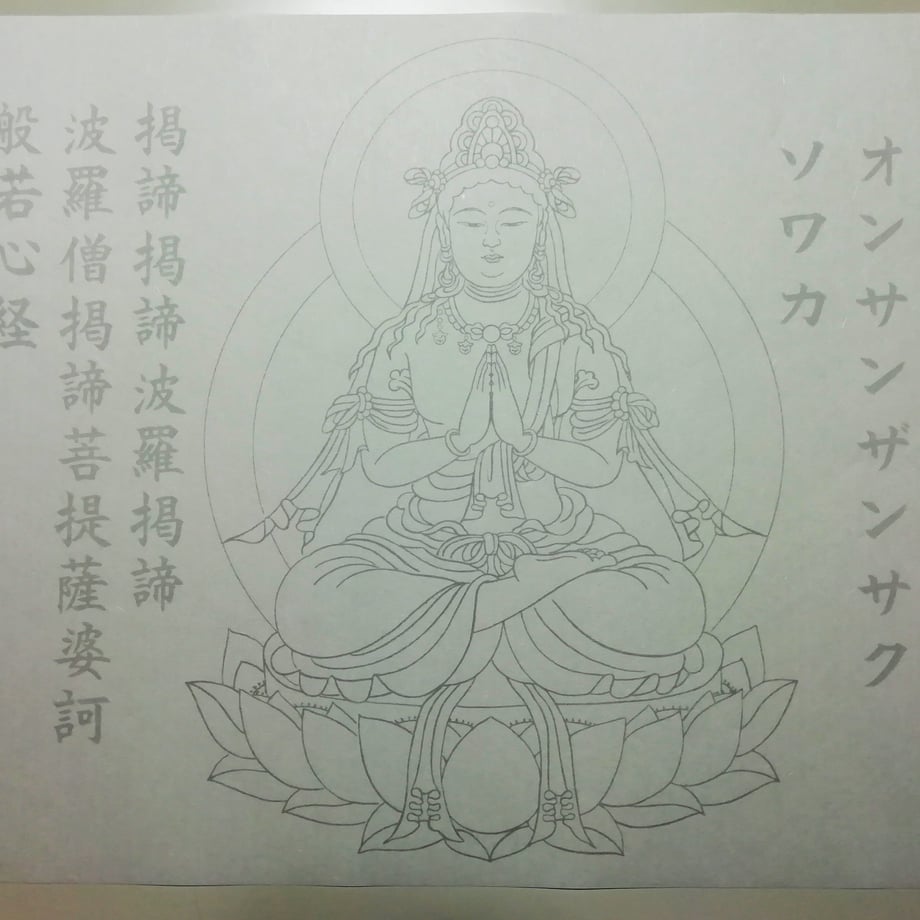 オンサンザンサク
ソワカ
掲諦掲諦波羅掲諦
波羅僧掲諦菩提薩婆訶
般若心経